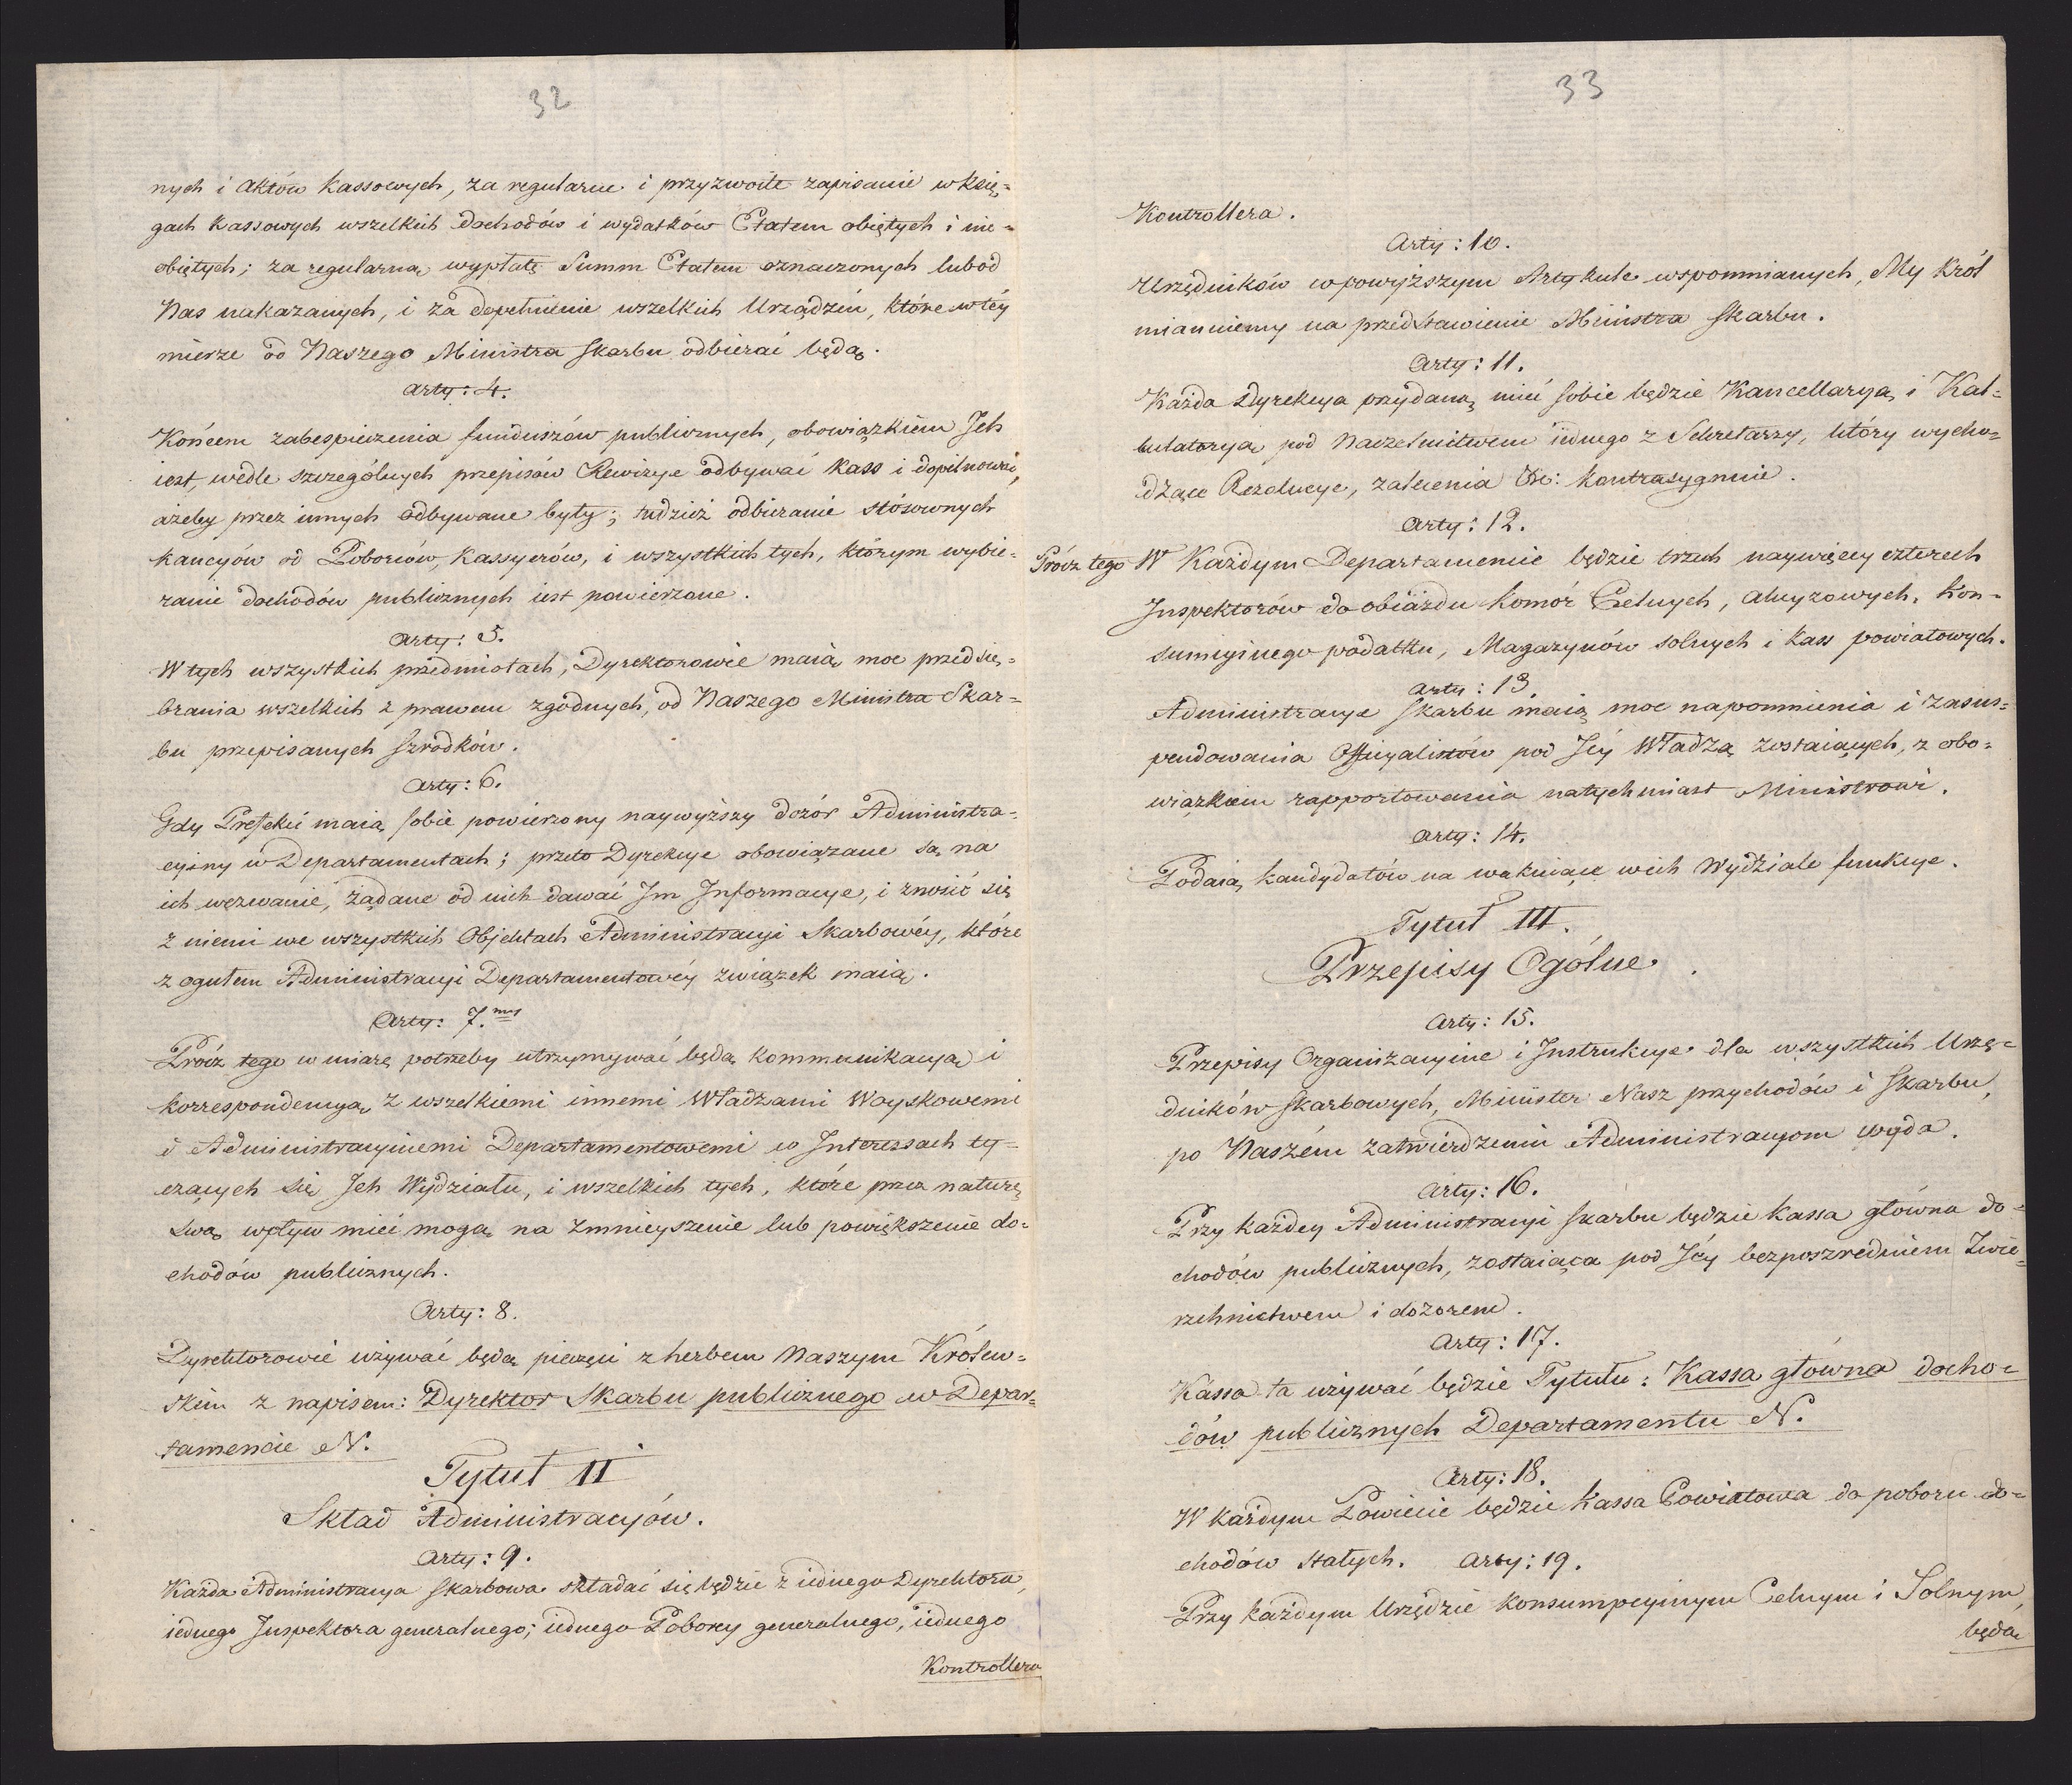 32
nych i aktów kassowych, za regularne i przyzwoite zapisanie w Księ=
gach kassowych wszelkich dochodów i wydatków Etatem obiętych i nie=
obiętych; za regularną wypłatę Summ Etatem oznaczonych lub od
Nas nakazanych, i za dopełnienie wszelkich Urządzeń, które w téy
mierze od Naszego Ministra Skarbu odbierać będą.
Arty: 4.
Końcem zabespieczenia funduszów publicznych, obowiązkiem Jch
iest, wedle szczególnych przepisów Rewizye odbywać kass i dopilnować,
ażeby przez innych odbywane były; tudzież odbieranie stósownych
kaucyów od Poborców, Kassyerów, i wszystkich tych, którym wybie=
ranie dochodów publicznych iest powierzone.
Arty: 5.
W tych wszystkich przedmiotach, Dyrektorowie maią moc przedsię=
brania wszelkich z prawem zgodnych, od Naszego Ministra Skar=
bu przepisanych szrodków.
Arty: 6.
Gdy Prefekci maią sobie powierzony naywyższy dozór Administra=
cyiny w Departamentach; przeto Dyrekcye obowiązane są na
ich wezwanie, żądane od nich dawać Jm Jnformacye, i znosić się
z niemi we wszystkich Objektach Administracyi Skarbowéy, które
z ogułem Administracyi Departamentowéy związek maią.
Arty: 7.my
Prócz tego w miarę potrzeby utrzymywać będą kommunikacyą i
korrespondencyą z wszelkiemi innemi Władzami Woyskowemi
i Administracyinemi Departamentowemi w Jnteressach ty=
czących się Jch Wydziału, i wszelkich tych, które przez naturę
swą wpływ mieć mogą na zmnieyszenie lub powiększenie do=
chodów publicznych.
Arty: 8.
Dyrektorowie używać będą pieczęci z herbem Naszym Królew=
skim z napisem: Dyrektor Skarbu publicznego w Depar=
tamencie N.
Tytuł II
Skład Administracyów.
Arty: 9.
Każda Administracya Skarbowa składać się będzie z iednego Dyrektora,
iednego Jnspektora generalnego; iednego Poborcy generalnego, iednego
Kontrollera
33
Kontrollera.
Arty: 10.
Urzędników w powyższym Artykule wspomnianych, My Król
mianuiemy na przedstawienie Ministra Skarbu.
Arty: 11.
Każda Dyrekcya przydaną mieć sobie będzie Kancellaryą i Kal=
kulatoryą pod Naczelnictwem iednego z Sekretarzy, który wycho=
dzące Rezolucye, zalecenia &c: kontrasygnuie.
Arty: 12.
Prócz tego W Każdym Departamencie będzie trzech naywięcey czterech
Jnspektorów do obiazdu komór Celnych, akcyzowych, kon=
sumcyinego podatku, Magazynów solnych i kass powiatowych.
Arty: 13.
Administracye Skarbu maią moc napomnienia i zasus=
pendowania Officyalistów pod Jéy Władzą zostaiących, z obo=
wiązkiem rapportowania natychmiast Ministrowi.
Arty: 14.
Podaią kandydatów na wakuiące w ich Wydziale funkcye.
Tytuł III.
Przepisy Ogólne.
Arty: 15.
Przepisy Organizacyine i Jnstrukcye dla wszystkich Urzę=
dników Skarbowych, Minister Nasz przychodów i Skarbu,
po Naszém zatwierdzeniu Administracyom wyda.
Arty: 16.
Przy każdey Administracyi skarbu będzie kassa główna do=
chodów publicznych, zostaiąca pod Jéy bezposzredniem Zwie=
rzchnictwem i dozorem.
Arty: 17.
Kassa ta używać będzie Tytułu: Kassa główna docho=
dów publicznych Departamentu N.
Arty: 18.
W każdym Powiecie będzie Kassa Powiatowa do poboru do=
chodów stałych. Arty: 19.
Przy każdym Urzędzie konsumpcyinym Celnym i Solnym,
będą